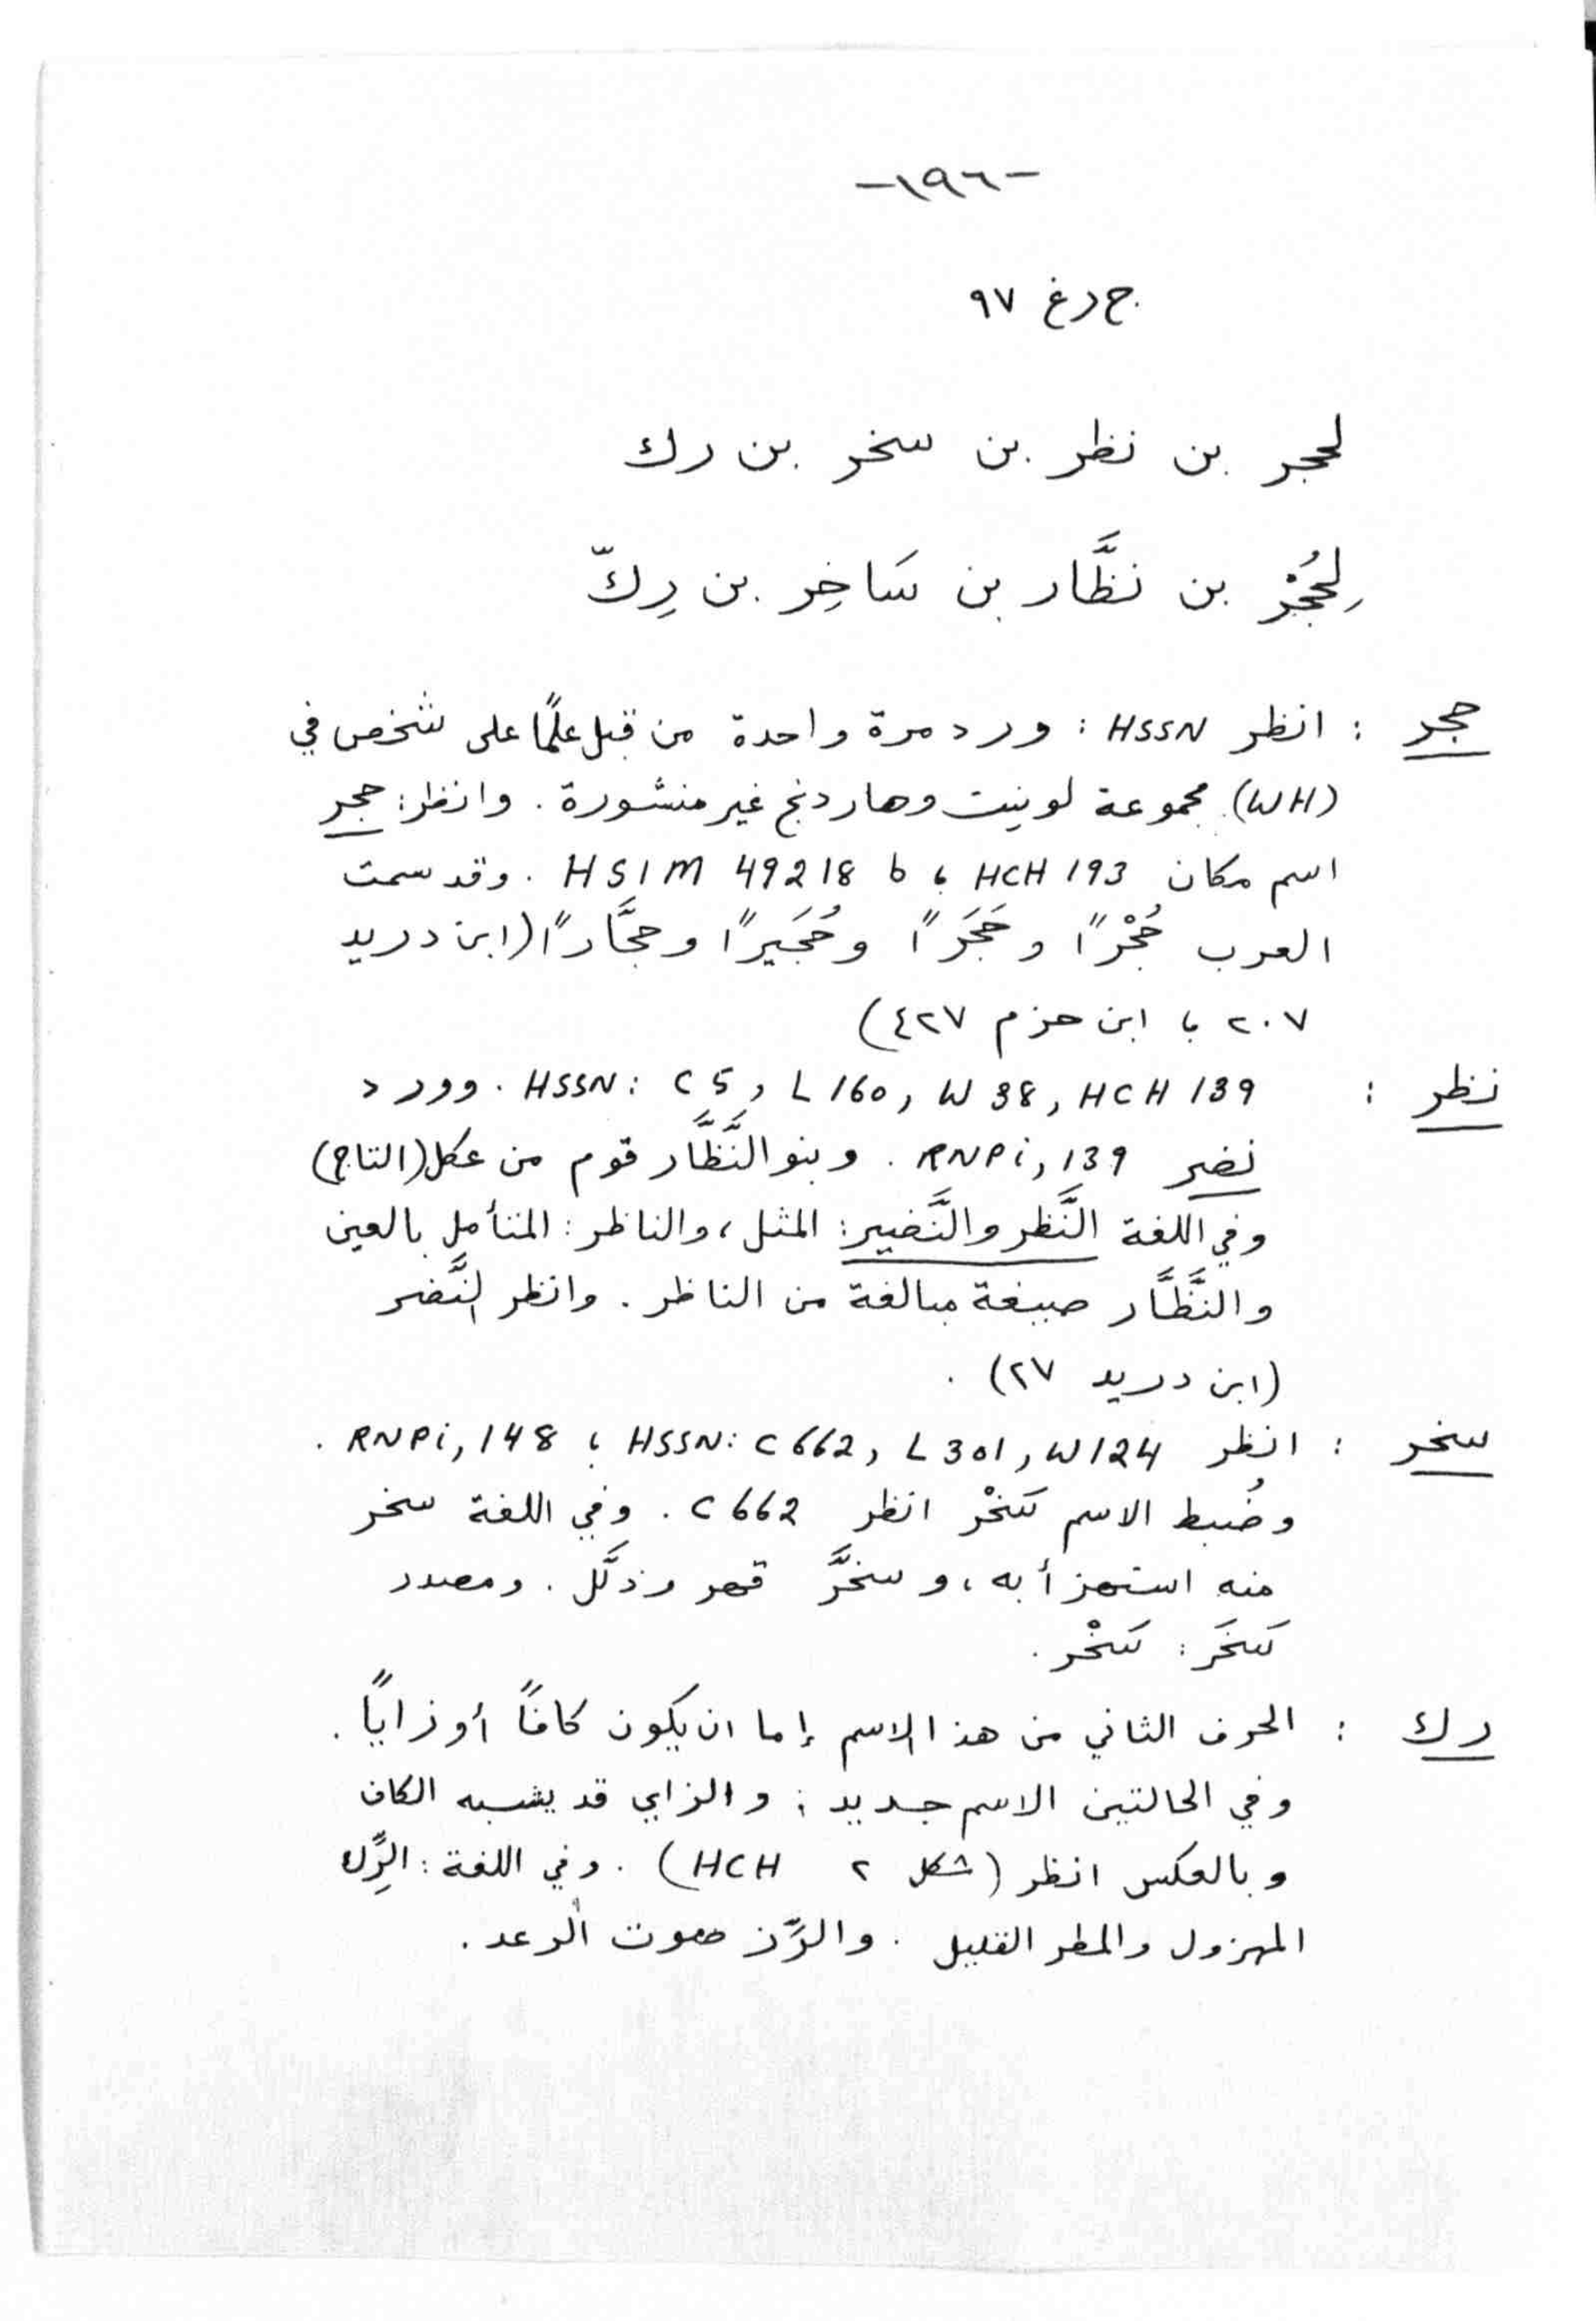 -١٩٦-
ج د غ ٩٧
لحجر بن نظر بن سخر بن رك
لِحُجْر بن نظَّار بن سَاخِر بن رِكّ
حجر : انظر HSSN : ورد مرة واحدة من قبل علمًا على شخص في
(WH) مجموعة لوينيت وهاردنج غير منشورة . وانظر: حجر
اسم مكان HCH 193 ؛ HSIM 49218 b . وقد سمت
العرب حُجْرًا و حَجَرًا وحُجَيرًا وحجَّارًا (ابن دريد
٢٠٧ ؛ ابن حزم ٤٢٧)
نظر : HSSN: C 5, L 160, W 38, HCH 139 . وورد
نضر RNPi, 139 . وبنو النَّظَّار قوم من عكل (التاج)
وفي اللغة النَّظر والنَّضير: المثل، والناظر: المتأمل بالعين
والنَّظَّار صيغة مبالغة من الناظر . وانظر النَّضر
(ابن دريد ٢٧) .
سخر : انظر HSSN: C 662, L 301, W 124 ؛ RNPi, 148 .
وضُبط الاسم سَخْر انظر C 662 . وفي اللغة سخر
منه استهزأ به، وسخَّر قهر وذلَّل . ومصدر
سَخَر : سَخْر .
رك : الحرف الثاني من هذا الاسم إما ان يكون كافاً أو زاياً .
وفي الحالتين الاسم جديد ; والزاي قد يشبه الكاف
وبالعكس انظر (شكل ٢ HCH) . وفي اللغة : الرِّك
المهزول والمطر القليل . والرِّز صوت الرعد .